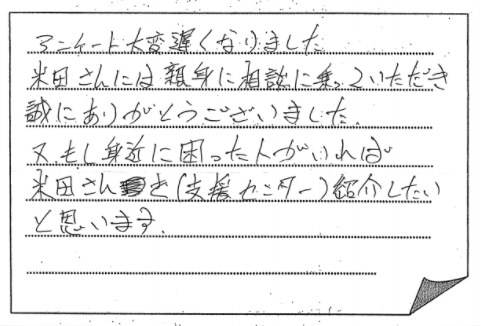 アンケート大変遅くなりました
米田さんには親身に相談に乗っていただき
誠にありがとうございました.
又もし身近に困った人がいれば
米田さんを(支援センター)紹介したい
と思います.